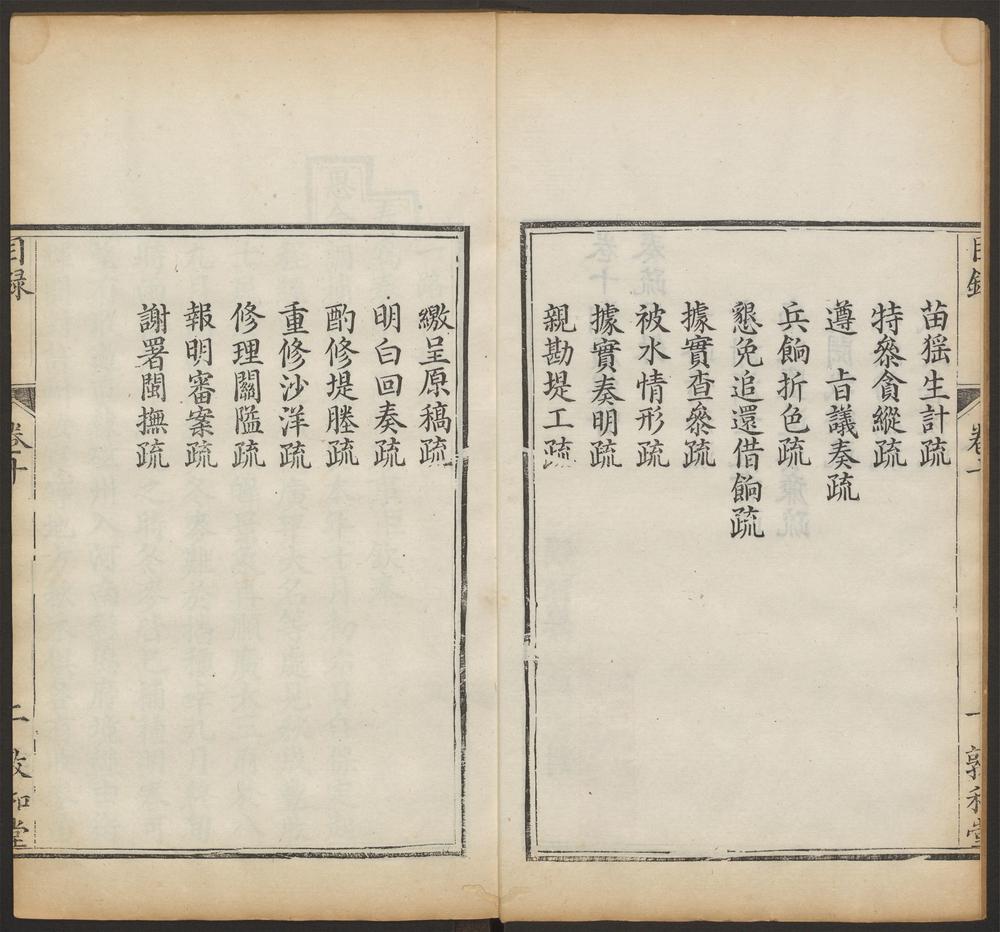 目錄
卷十
一
敦和堂
苗猺生計疏
特叅貪縱疏
遵 旨議奏疏
兵餉折色疏
懇免追還借餉疏
據實查叅疏
被水情形疏
據實奏明疏
親勘堤工疏
繳呈原稿疏
明白回奏疏
酌修堤塍疏
重修沙洋疏
修理關隘疏
報明審案疏
謝署閩撫疏
目錄
卷十
二
敦和堂